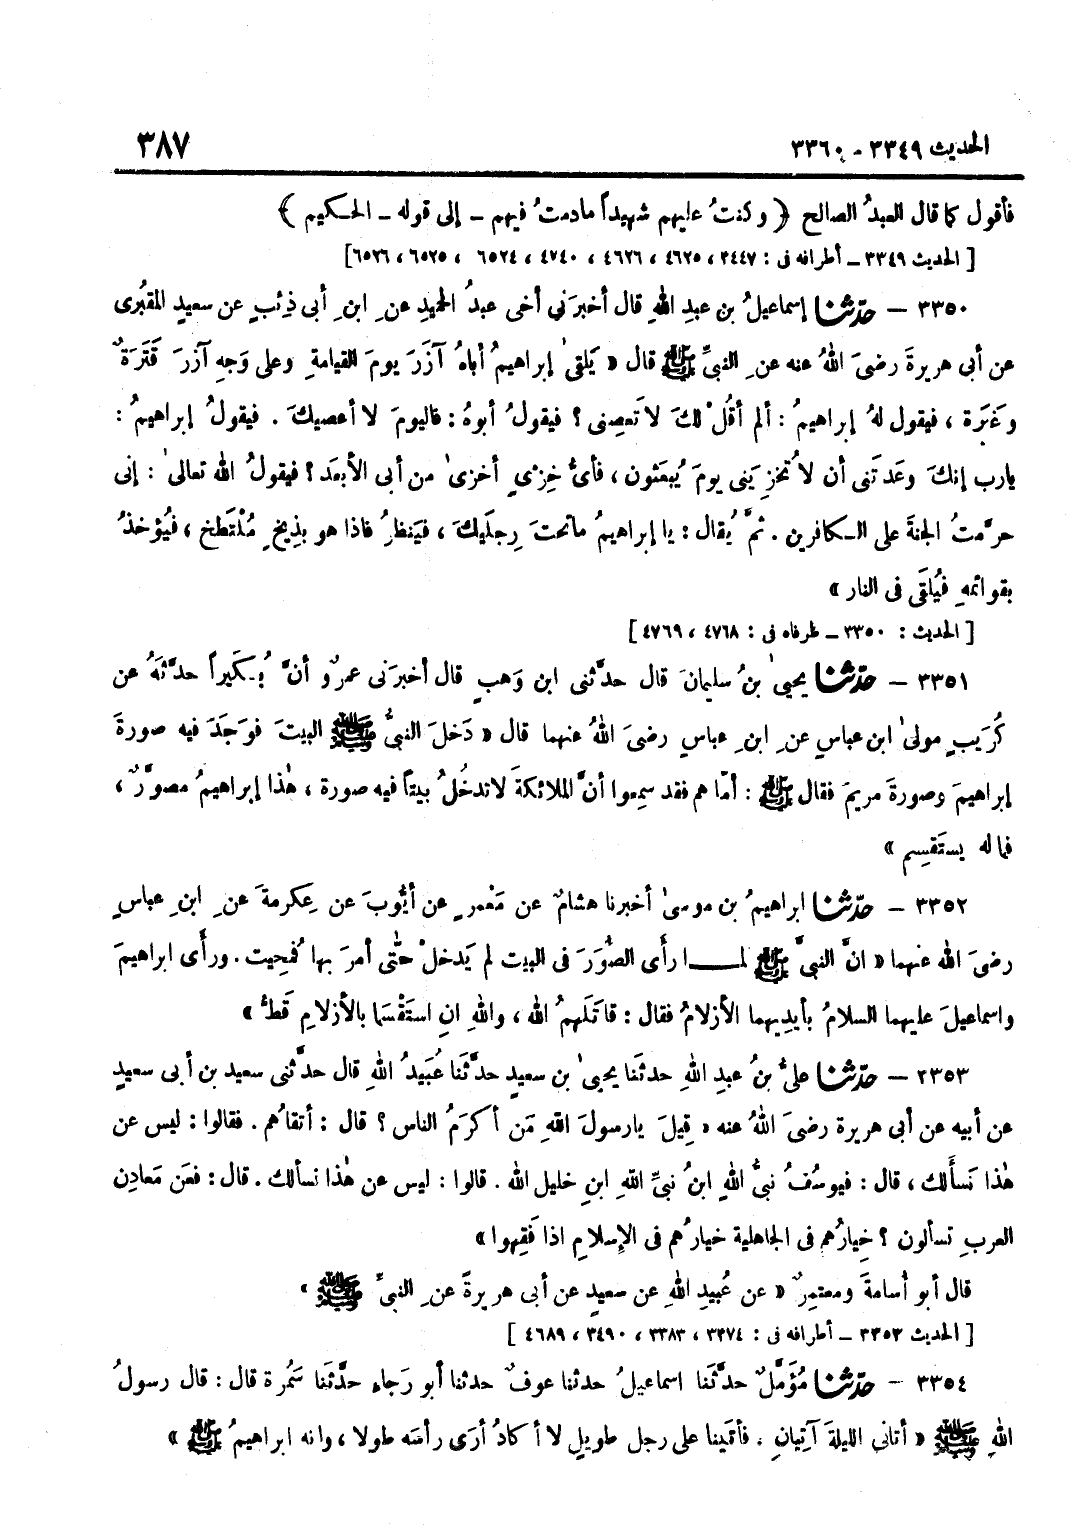 الحديث ٣٣٤٩ - ٣٣٦٠ ٣٨٧
فأقول كما قال العبدُ الصالح ﴿ وكنتُ عليهم شهيداً مادمتُ فيهم – إلى قوله – الحكيم ﴾
[ الحديث ٣٣٤٩ – أطرافه فى : ٣٤٤٧ ، ٤٦٢٥ ، ٤٦٢٦ ، ٤٧٤٠ ، ٦٥٢٤ ، ٦٥٢٥ ، ٦٥٢٦ ]
٣٣٥٠ – حدّثنا إسماعيلُ بن عبدِ اللهِ قال أخبرَني أخى عبدُ الحميدِ عنِ ابنِ أبى ذِئبٍ عن سعيدٍ المقبُرى
عن أبى هريرةَ رضىَ اللهُ عنه عنِ النبىِّ ﷺ قال « يَلقىٰ إبراهيمُ أباهُ آزَرَ يومَ القيامةِ وعلى وَجهِ آزرَ قَتَرَةٌ
وغَبَرة ، فيقول لهُ إبراهيمُ : ألم أقُلْ لكَ لا تَعصِنى ؟ فيقولُ أبوهُ : فاليومَ لا أعصيكَ . فيقولُ إبراهيمُ :
يارب إنكَ وعَدتَنى أن لا تُخزِيَنى يومَ يُبعَثون ، فأىُّ خِزْىٍ أخزىٰ من أبى الأبعَد ؟ فيقولُ الله تعالىٰ : إنى
حرَّمتُ الجنةَ على الـكافرين . ثمَّ يُقال : يا إبراهيمُ ماتحتَ رِجلَيكَ ، فيَنظرُ فاذا هو بذِيخٍ مُلْتَطخ ، فيُؤخذُ
بقوائمهِ فيُلقَى فى النار »
[ الحديث : ٣٣٥٠ – طرفاه فى : ٤٧٦٨ ، ٤٧٦٩ ]
٣٣٥١ – حدّثنا يحيىٰ بنُ سليمانَ قال حدَّثنى ابن وَهبٍ قال أخبرَنى عمرٌو أنَّ بُـكَيراً حدَّثهُ عن
كُرَيبٍ مولىٰ ابن عباسٍ عنِ ابنِ عباسٍ رضىَ اللهُ عنهما قال « دَخلَ النبىُّ ﷺ البيتَ فوَجَدَ فيه صورةَ
إبراهيمَ وصورةَ مريمَ فقال ﷺ : أمّا هم فقد سمِعوا أنَّ الملائكةَ لاتدخُلُ بيتاً فيه صورة ، هٰذا إبراهيمُ مصوَّرٌ ،
فما له يستَقسِم »
٣٣٥٢ – حدّثنا ابراهيمُ بن موسىٰ أخبرنا هشامٌ عن مَعْمرٍ عن أيُّوبَ عن عِكرمةَ عنِ ابنِ عباسٍ
رضىَ الله عنهما « انَّ النبىَّ ﷺ لمـــا رأى الصُّوَرَ فى البيت لم يَدخلْ حتّى أمرَ بها فمُحِيت . ورأى ابراهيمَ
واسماعيلَ عليهما السلامُ بأيدِيهما الأزلامُ فقال : قاتَلَهمُ الله ، واللهِ انِ استَقْسَما بالأزلامِ قَطُّ »
٢٣٥٣ – حدّثنا علىُّ بنُ عبدِ اللهِ حدثنَا يحيىٰ بن سعيدٍ حدَّثنَا عُبَيدُ اللهِ قال حدَّثنى سعيد بن أبى سعيدٍ
عن أبيه عن أبى هريرة رضىَ اللهُ عنه « قِيلَ يارسولَ اللهِ مَن أكرَمُ الناس ؟ قال : أتقاهُم . فقالوا : ليس عن
هٰذا نَسأَلك ، قال : فيوسُفُ نبىُّ اللهِ ابنُ نبىِّ اللهِ ابنِ خليل الله . قالوا : ليس عن هٰذا نسألك . قال : فعَن مَعادِن
العربِ تسألون ؟ خِيارُهم فى الجاهلية خيارُهم فى الإسلامِ اذا فَقِهوا »
قال أبو أُسامةَ ومعتمِرٌ « عن عُبيدِ اللهِ عن سعيدٍ عن أبى هريرةَ عنِ النبىِّ ﷺ »
[ الحديث ٣٣٥٣ – أطرافه فى : ٣٣٧٤ ، ٣٣٨٣ ، ٣٤٩٠ ، ٤٦٨٩ ]
٣٣٥٤ – حدّثنا مُؤَمَّلٌ حدَّثَنا اسماعيلُ حدثنا عوفٌ حدثنا أبو رَجاءٍ حدَّثَنا سَمُرة قال : قال رسولُ
اللهِ ﷺ « أتانى الليلةَ آتِيانِ . فأتَينا على رجل طويلٍ لا أكادُ أرَى رأسَه طولا ، وانه ابراهيمُ ﷺ »